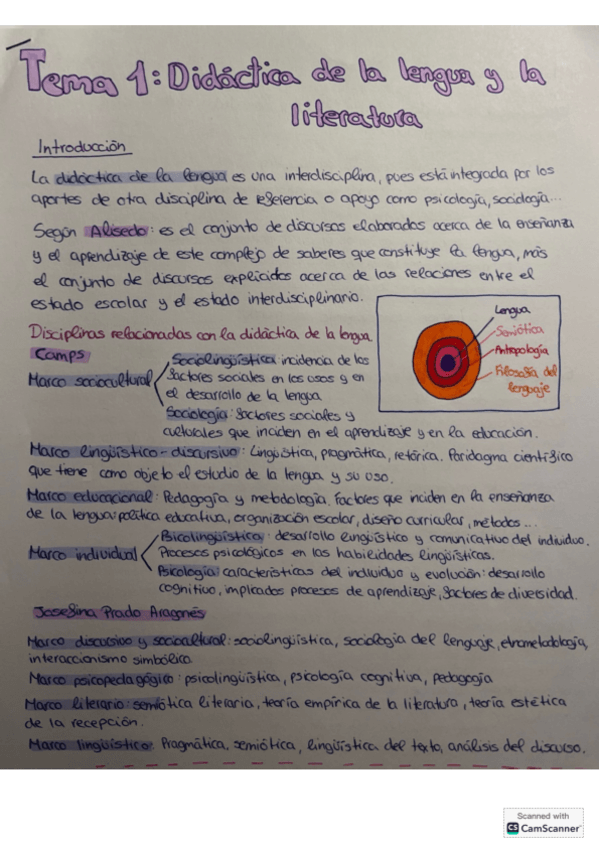 Tema 1: Didáctica de la lengua y la
literatura
Introducción
La didáctica de la lengua es una interdisciplina, pues está integrada por los
aportes de otra disciplina de referencia o apoyo como psicología, sociología...
Según Alisedo: es el conjunto de discursos elaborados acerca de la enseñanza
y el aprendizaje de este complejo de saberes que constituye la lengua, más
el conjunto de discursos explicidos acerca de las relaciones entre el
estado escolar y el estado interdisciplinario.
Disciplinas relacionadas con la didáctica de la lengua
Lengua
Semiótica
Antropología
Filosofía del
lenguaje
Camps
Marco sociocultural
Sociolingüística: incidencia de los
factores sociales en los usos y en
el desarrollo de la lengua
Sociología: factores sociales y
culturales que inciden en el aprendizaje y en la educación.
Marco lingüístico-discursivo: Lingüística, pragmática, retórica. Paridagma científico
que tiene como objeto el estudio de la lengua y su uso.
Marco educacional: Pedagogía y metodología. Factores que inciden en la enseñanza
de la lengua: política educativa, organización escolar, diseño curricular, métodos...
Marco individual
Psicolingüística: desarrollo lingüístico y comunicativo del individuo.
Procesos psicológicos en las habilidades lingüísticas.
Psicología: características del individuo y evolución: desarrollo
cognitivo, implicados procesos de aprendizaje, factores de diversidad.
Josefina Prado Aragonés
Marco discursivo y sociocultural: sociolingüística, sociología del lenguaje, etnometodología,
interaccionismo simbólico.
Marco psicopedagógico: psicolingüística, psicología cognitiva, pedagogía
Marco literario: semiótica literaria, teoría empírica de la literatura, teoría estética
de la recepción.
Marco lingüístico: Pragmática, semiótica, lingüística del texto, análisis del discurso.
Scanned with
CS CamScanner